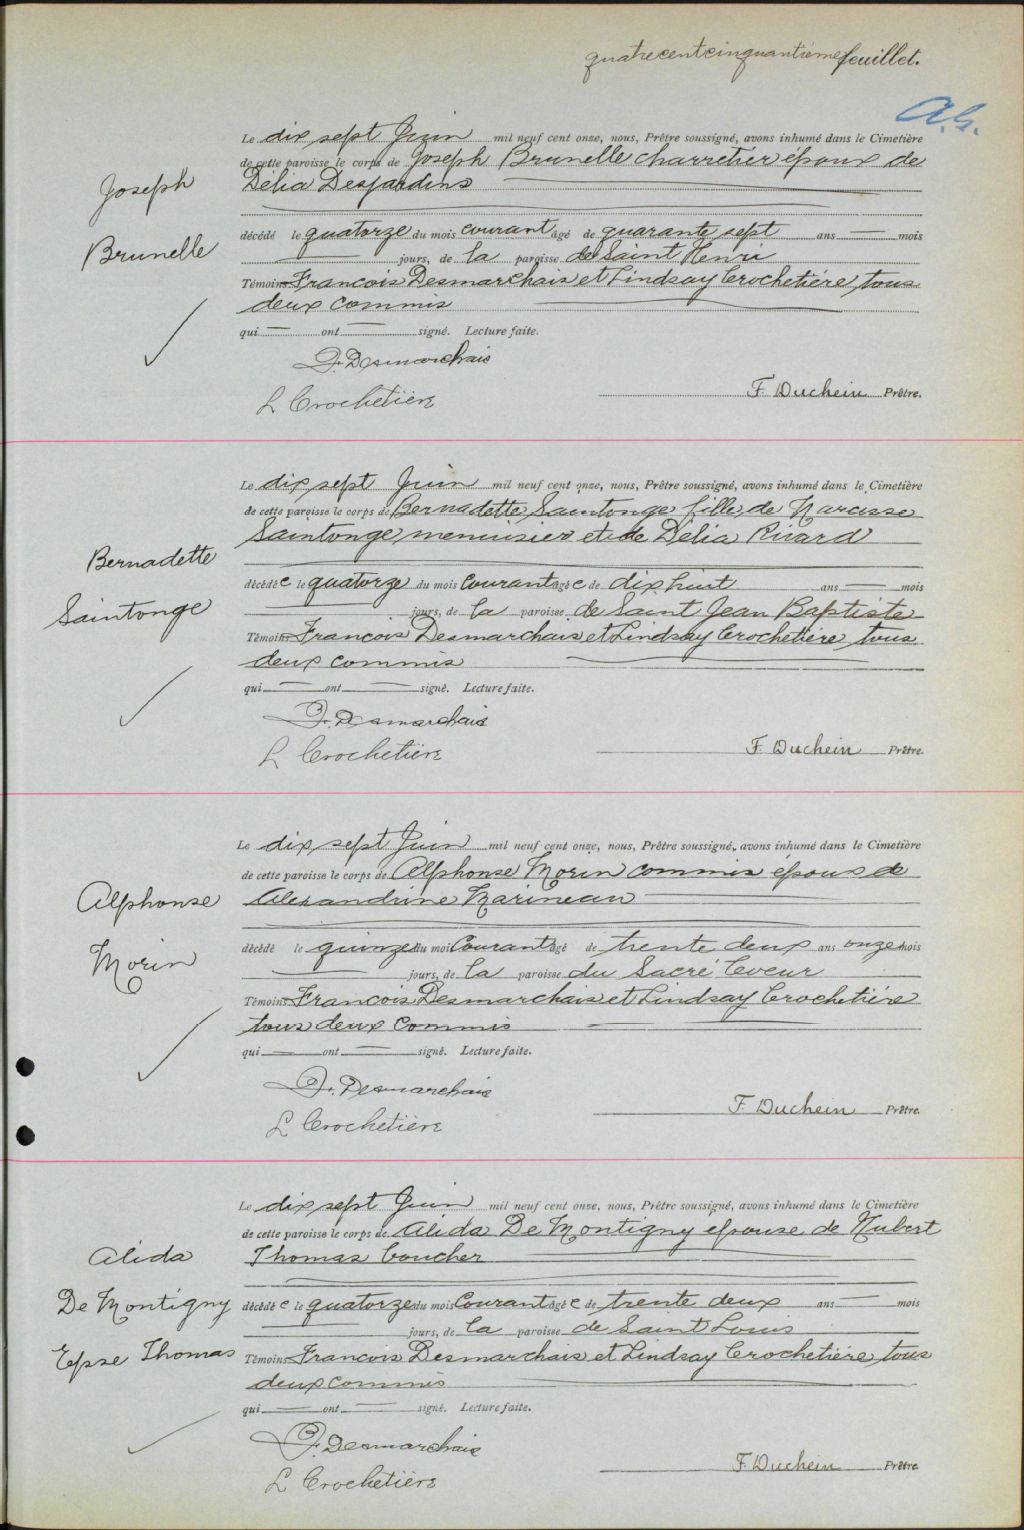 quatre cent cinquantième feuillet.
A.G.
Le dix sept Juin mil neuf cent onze, nous, Prêtre soussigné, avons inhumé dans le Cimetière
de cette paroisse le corps de Joseph Brunelle charretier époux de
Délia Desjardins
Joseph
Brunelle
décédé le quatorze du mois courant âgé de quarante sept ans — mois
— jours, de la paroisse de Saint Henri
Témoins Francois Desmarchais et Lindsay Crochetière, tous
deux commis
qui — ont — signé. Lecture faite.
Fr. Desmarchais
L Crochetière
F. Duchein Prêtre.
Le dix sept Juin mil neuf cent onze, nous, Prêtre soussigné, avons inhumé dans le Cimetière
de cette paroisse le corps de Bernadette Saintonge fille de Narcisse
Saintonge, menuisier et de Délia Rivard
Bernadette
Saintonge
décédée le quatorze du mois courant âgée de dix huit ans — mois
— jours, de la paroisse de Saint Jean Baptiste
Témoins Francois Desmarchais et Lindsay Crochetière, tous
deux commis
qui — ont — signé. Lecture faite.
Fr. Desmarchais
L Crochetière
F. Duchein Prêtre.
Le dix sept Juin mil neuf cent onze, nous, Prêtre soussigné, avons inhumé dans le Cimetière
de cette paroisse le corps de Alphonse Morin commis époux de
Alexandrine Marineau
Alphonse
Morin
décédé le quinze du mois Courant âgé de trente deux ans onze mois
— jours, de la paroisse du Sacré Coeur
Témoins Francois Desmarchais et Lindsay Crochetière
tous deux commis
qui — ont — signé. Lecture faite.
Fr. Desmarchais
L Crochetière
F. Duchein Prêtre.
Le dix sept Juin mil neuf cent onze, nous, Prêtre soussigné, avons inhumé dans le Cimetière
de cette paroisse le corps de Alida De Montigny epouse de Hubert
Thomas Coucher
Alida
De Montigny
Epse Thomas
décédée le quatorze du mois Courant âgée de trente deux ans — mois
— jours, de la paroisse de Saint Louis
Témoins Francois Desmarchais et Lindsay Crochetière, tous
deux commis
qui — ont — signé. Lecture faite.
Fr. Desmarchais
L Crochetière
F. Duchein Prêtre.